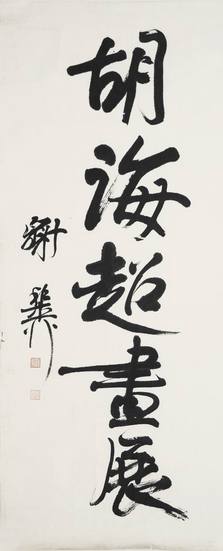 胡海超畫展
謝稚柳